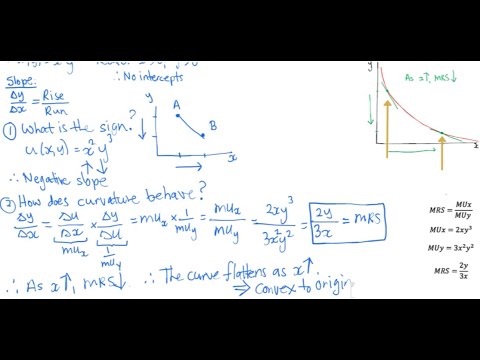 ∴ No intercepts
Slope:
Δy/Δx = Rise/Run
① What is the sign?
u(x,y) = x²y³
∴ Negative slope
y
A
B
x
② How does curvature behave?
Δy/Δx = Δu/Δx × Δy/Δu = MUx × 1/MUy = MUx/MUy = 2xy³/3x²y² = 2y/3x = MRS
MUx
1/MUy
∴ As x↑, MRS↓ ∴ The curve flattens as x↑
⇒ Convex to origin
y
As x↑, MRS↓
x
MRS = MUx/MUy
MUx = 2xy³
MUy = 3x²y²
MRS = 2y/3x